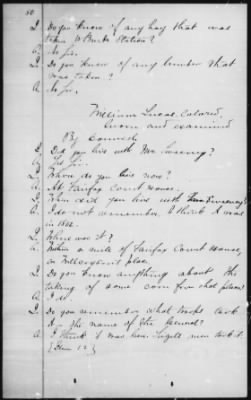 50
Q. Do you know of any hay that was
taken to Burke Station?
A. No Sir.
Q. Do you know of any lumber that
was taken?
A. No Sir.
William Lucas, Colored,
Sworn and examined
By Counsel
Q. Did you live with Mr. Sweeney?
A. Yes Sir.
Q. Where do you live now?
A. At Fairfax Court House.
Q. When did you live with Sweeney?
A. I do not remember. I think it was
in 1862.
Q. Where was it?
A. Within a mile of Fairfax Court House,
on place.
Q. Do you know anything about the
taking of some corn from that place?
A. I do.
Q. Do you remember what troops took
it — the name of the General?
A. I think it was Gen. men took it.